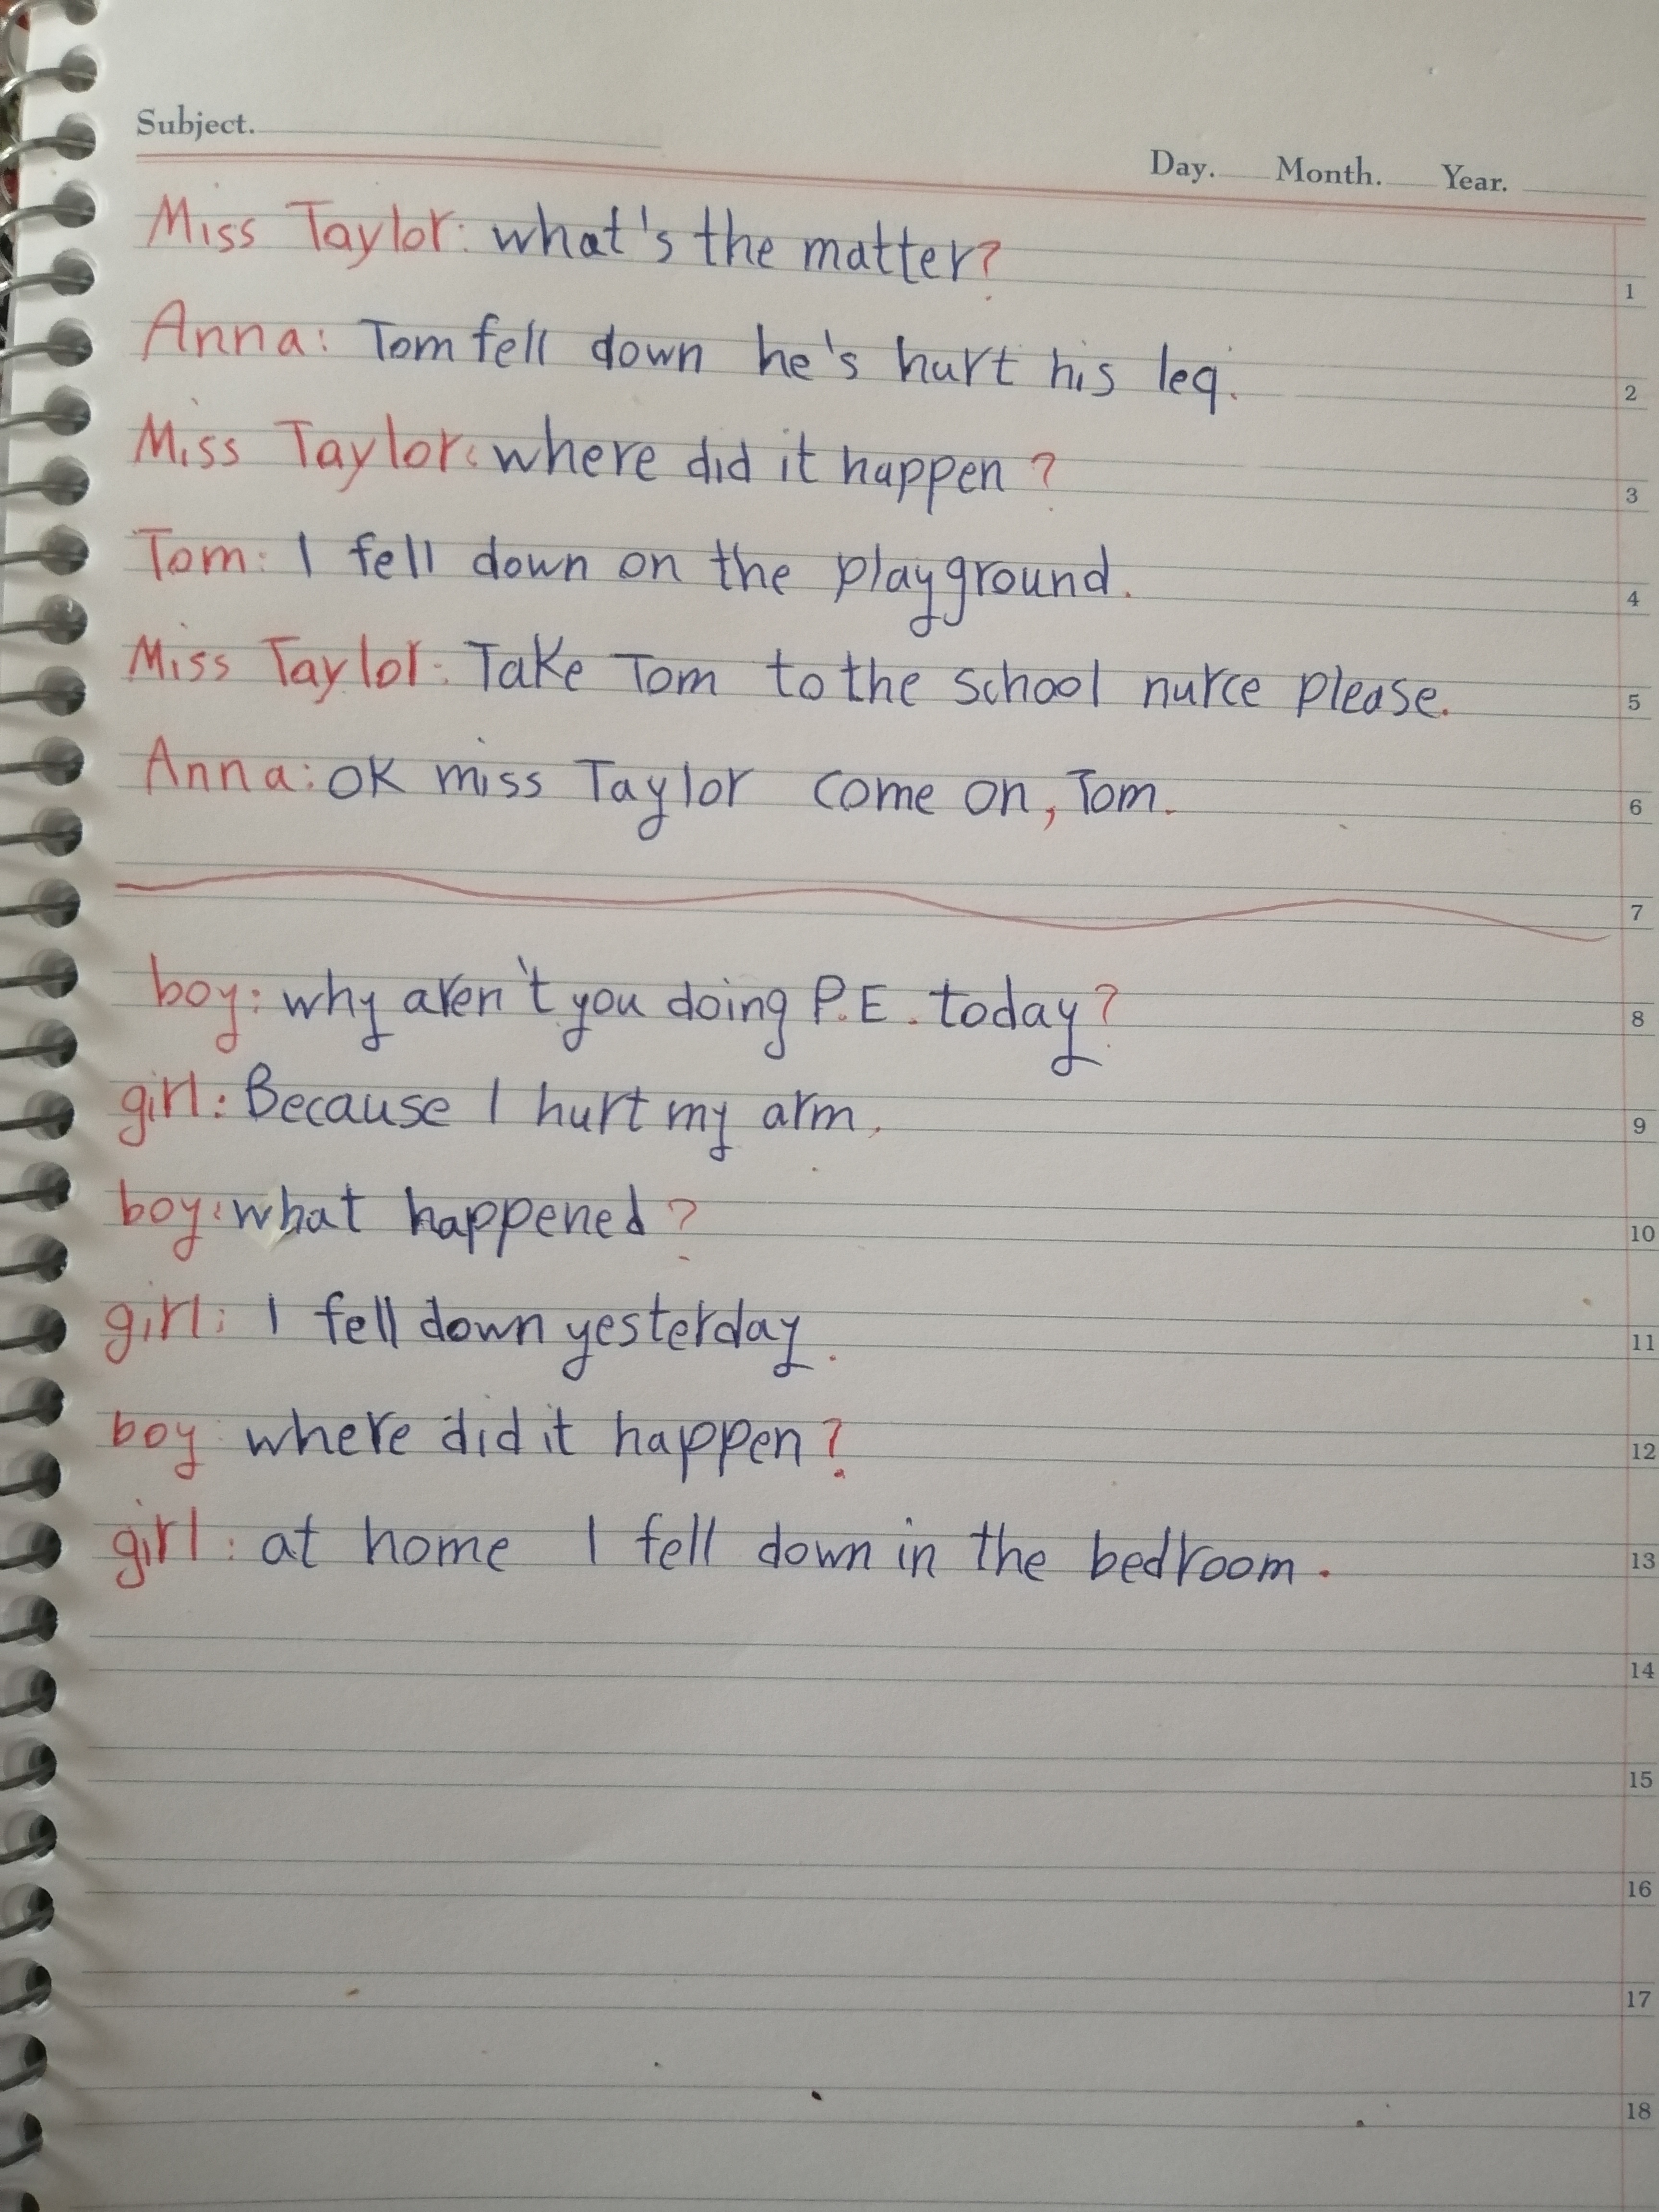 Subject.
Day. Month. Year.
Miss Taylor: what's the matter?
1
Anna: Tom fell down he's hurt his leg.
2
Miss Taylor: where did it happen?
3
Tom: I fell down on the playground.
4
Miss Taylor: Take Tom to the school nurce please.
5
Anna: OK miss Taylor come on, Tom.
6
7
boy: why aren't you doing P.E. today?
8
girl: Because I hurt my arm.
9
boy: what happened?
10
girl: I fell down yesterday.
11
boy where did it happen?
12
girl: at home I fell down in the bedroom.
13
14
15
16
17
18